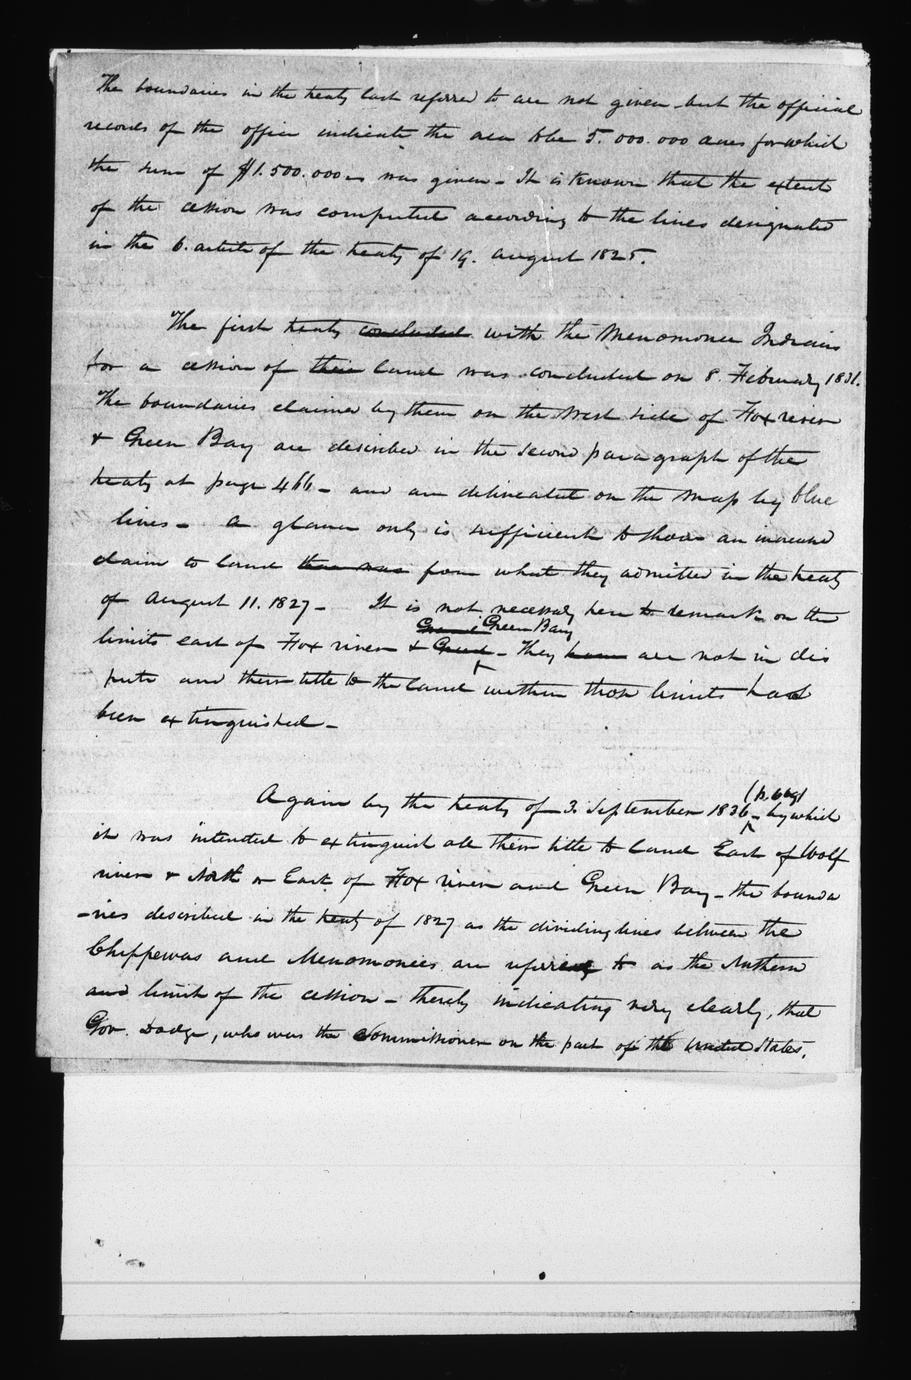 The boundaries in the treaty last referred to are not given - but the official
records of the office indicate the area to be 5.000.000 acres for which
the sum of $1.500.000 was given - It is known that the extent
of the cession was computed according to the lines designated
in the 6. article of the treaty of 19. August 1825.
The first treaty concluded with the Menomonee Indians
for a cession of their land was concluded on 8. February 1831.
The boundaries claimed by them on the West side of Fox river
& Green Bay are described in the second paragraph of the
treaty at page 466 - and are delineated on the map by blue
lines - a glance only is sufficient to show an increased
claim to land than was from what they admitted in the treaty
of August 11. 1827 - It is not necessary here to remark on the
Grand Green Bay
limits east of Fox river & Green - They have are not in dis
pute and their title to the land within those limits had
been extinguished -
(p. 669)
Again by the treaty of 3. September 1836 - by which
it was intended to extinguish all their title to land East of Wolf
river & North or East of Fox river and Green Bay - the bounda
-ries described in the treaty of 1827 as the dividing lines between the
Chippewas and Menomonees are referred to as the Northern
and limit of the cession - thereby indicating very clearly, that
Gov. Dodge, who was the Commissioner on the part of the United States,